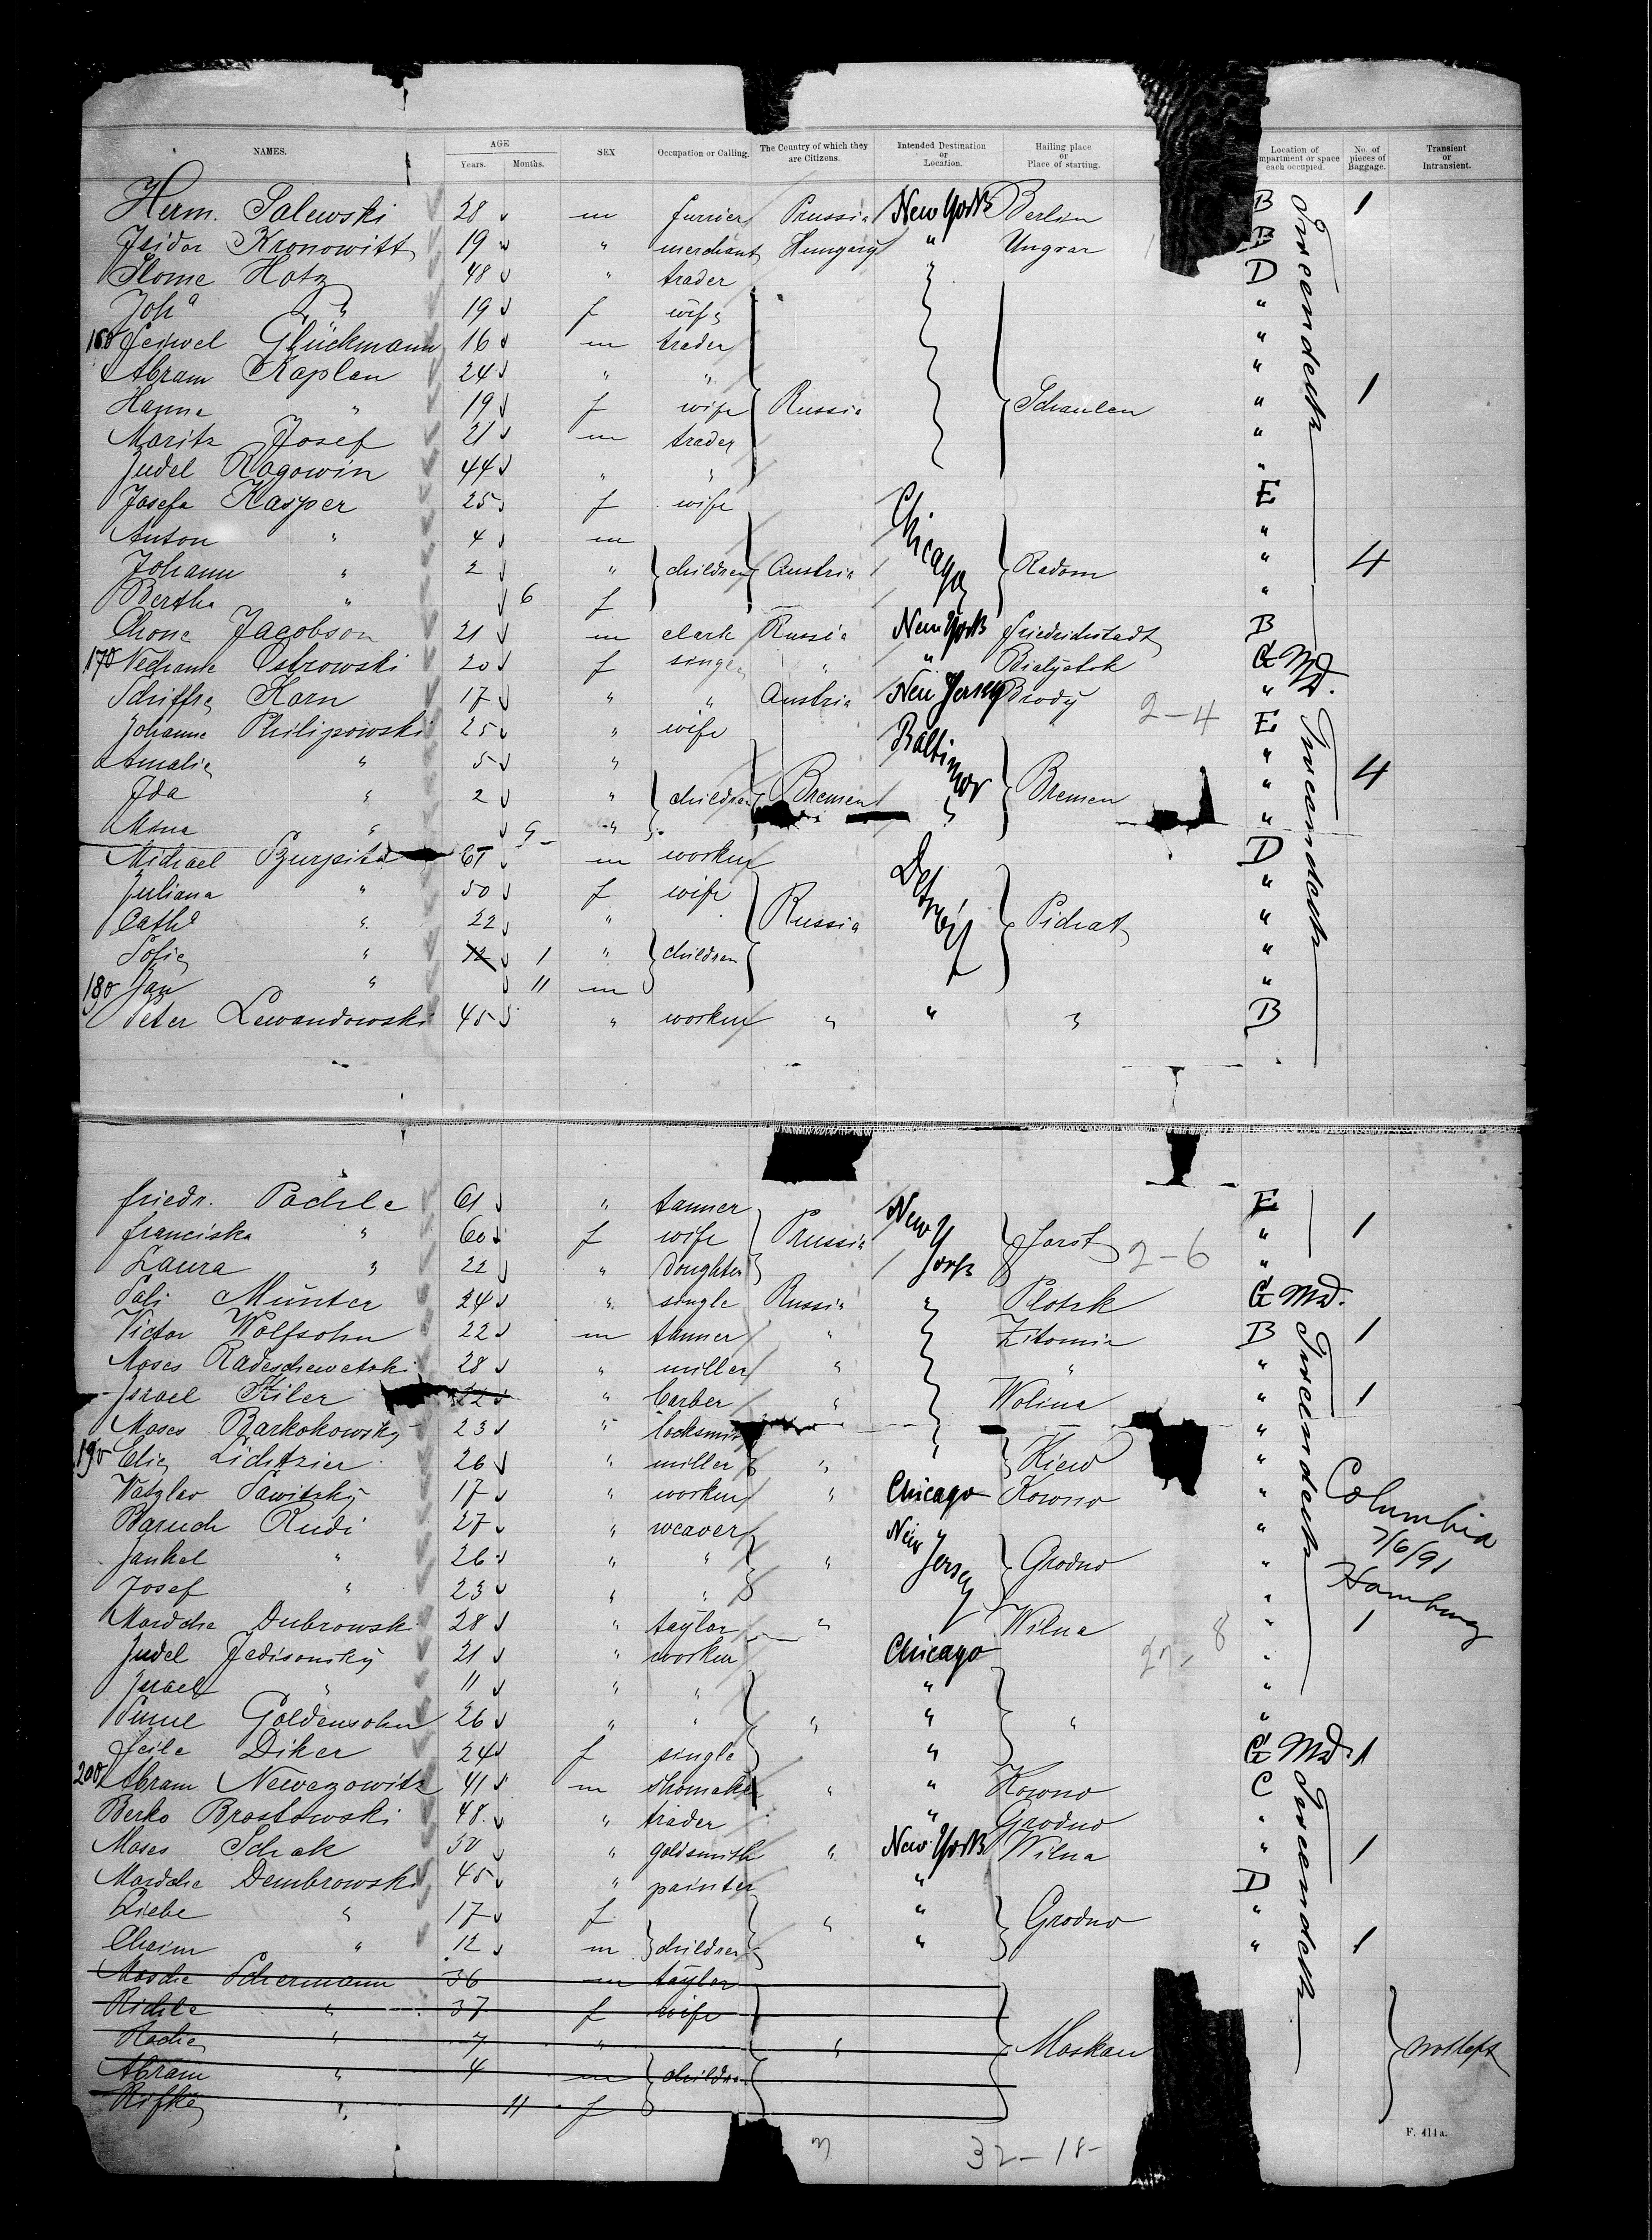 NAMES. AGE Years. Months. SEX Occupation or Calling. The Country of which they are Citizens. Intended Destination or Location. Hailing place or Place of starting. Location of compartment or space each occupied. No. of pieces of Baggage. Transient or Intransient.
Herm. Salewski 28 m furrier Prussia New York Berlin B 1
Isidor Kronowitt 19 " merchant Hungary " Ungvar B
Slome Hotz 48 " trader D
Joha " 19 f wife "
160 Feiwel Glückmann 16 m trader "
Abram Kaplan 24 " " "
Hanna " 19 f wife Russia Schaulen " 1
Moritz Josef 21 m trader "
Judel Rogowin 44 " " "
Josefa Kasper 25 f wife Chicago E
Anton " 4 m "
Johann " 2 " children Austria Radom " 4
Bertha " 6 f "
Chone Jacobson 21 m clark Russia New York Friedrichstadt B
170 Nechame Ostrowski 20 f single " " Bialystok G Md.
Schiffre Korn 17 " " Austria New Jersey Brody "
2-4
Johanne Philipowski 25 " wife Baltimor E
Amalie " 5 " " 4
Ida " 2 " children Bremen Bremen "
Mina " 9 " "
Michael 61 m worker Detroit D
Juliana " 50 f wife "
Cath " 22 " Russia "
Sofie " 12 1 " children "
180 Jan " 11 m "
Peter Lewandowski 45 " worker " " " B
Friedr. Pachle 61 " tanner New York E
Franciska " 60 f wife Prussia Forst 2-6 " 1
Laura " 22 " Doughter "
Sali Münter 24 " single Russia " Plotzk G Md.
Victor Wolfsohn 22 m tanner " Zitomir B 1
Moses Radeschewetzki 28 " miller " " "
Israel Skiler 22 " barber " Wolina " 1
Moses Barkokowsky 23 " locksmit "
190 Elie Lichtzier 26 " miller " " Kiew "
Watzlav Sawitzky 17 " worker " Chicago Kowno "
Columbia
7/6/91
Hamburg
Baruch Rudi 27 " weaver New Jersey "
Jankel " 26 " " " Grodno "
Josef " 23 " " "
Mordche Dubrowski 28 " taylor " Wilna " 1
Judel Jedisonsky 21 " worker Chicago "
Israel " 11 " " " "
Goldensohn 26 " " " " " "
Feile Diker 24 f single " G Md. 1
200 Abram Newezowitz 41 m shomaker " " Kowno C
Berko Brostowski 48 " trader " Grodno "
Moses Schak 50 " goldsmith " New York Wilna " 1
Mordche Dembrowski 45 " painter " D
Liebe " 17 f " " Grodno "
Chaim " 12 m children " " 1
Mosche Schermann 36 m taylor
Richle " 37 f wife
Rache " 7 " " Moskau not left
Abram " 4 m children
Rifke " 11 f
Tweendeck
Tweendeck
Tweendeck
Tweendeck
32-18-
F. 414a.